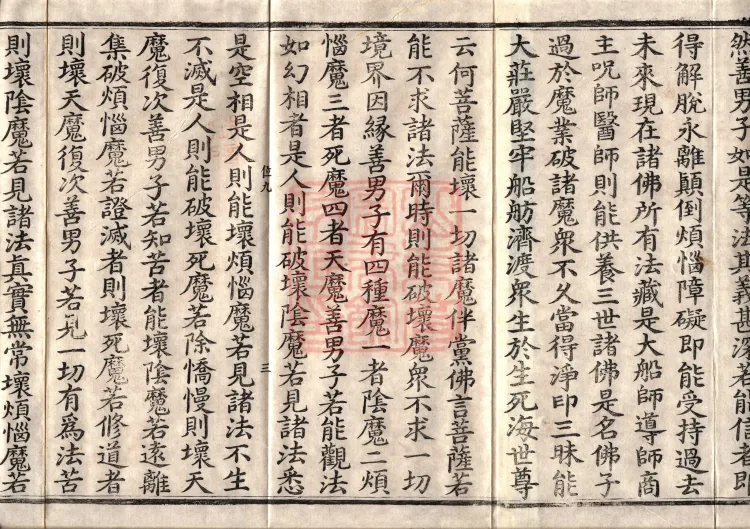 然善男子如是等法其義甚深若能信者即
得解脫永離顛倒煩惱障礙即能受持過去
未來現在諸佛所有法藏是大船師導師商
主呪師醫師則能供養三世諸佛是名佛子
過於魔業破諸魔衆不久當得淨印三昧能
大莊嚴堅牢船舫濟渡衆生於生死海世尊
云何菩薩能壞一切諸魔伴黨佛言菩薩若
能不求諸法爾時則能破壞魔衆不求一切
境界因緣善男子有四種魔一者陰魔二煩
惱魔三者死魔四者天魔善男子若能觀法
如幻相者是人則能破壞陰魔若見諸法悉
位九 三
是空相是人則能壞煩惱魔若見諸法不生
不滅是人則能破壞死魔若除憍慢則壞天
魔復次善男子若知苦者能壞陰魔若遠離
集破煩惱魔若證滅者則壞死魔若修道者
則壞天魔復次善男子若見一切有為法苦
則壞陰魔若見諸法真實無常壞煩惱魔若